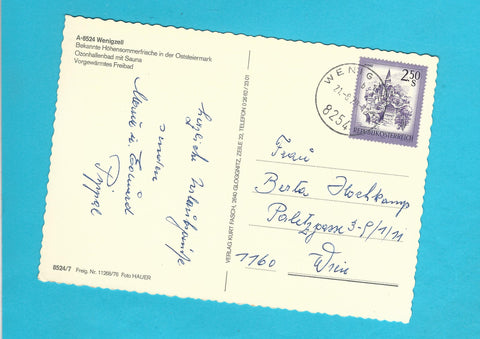 A-8524 Wenigzell
Bekannte Höhensommerfrische in der Oststeiermark
Ozonhallenbad mit Sauna
Vorgewärmtes Freibad
Herzliche Urlaubsgrüße
senden
Maria u. Eduard
8524/7 Freig. Nr. 11268/76 Foto HAUER
VERLAG KURT FASCH, 2640 GLOGGNITZ, ZEILE 22, TELEFON 0 26 62 / 33 01
WENIG
8254
2.50
S
REPUBLIK ÖSTERREICH
Frau
Berta Hochkamp
3-9/1/11
1160 Wien